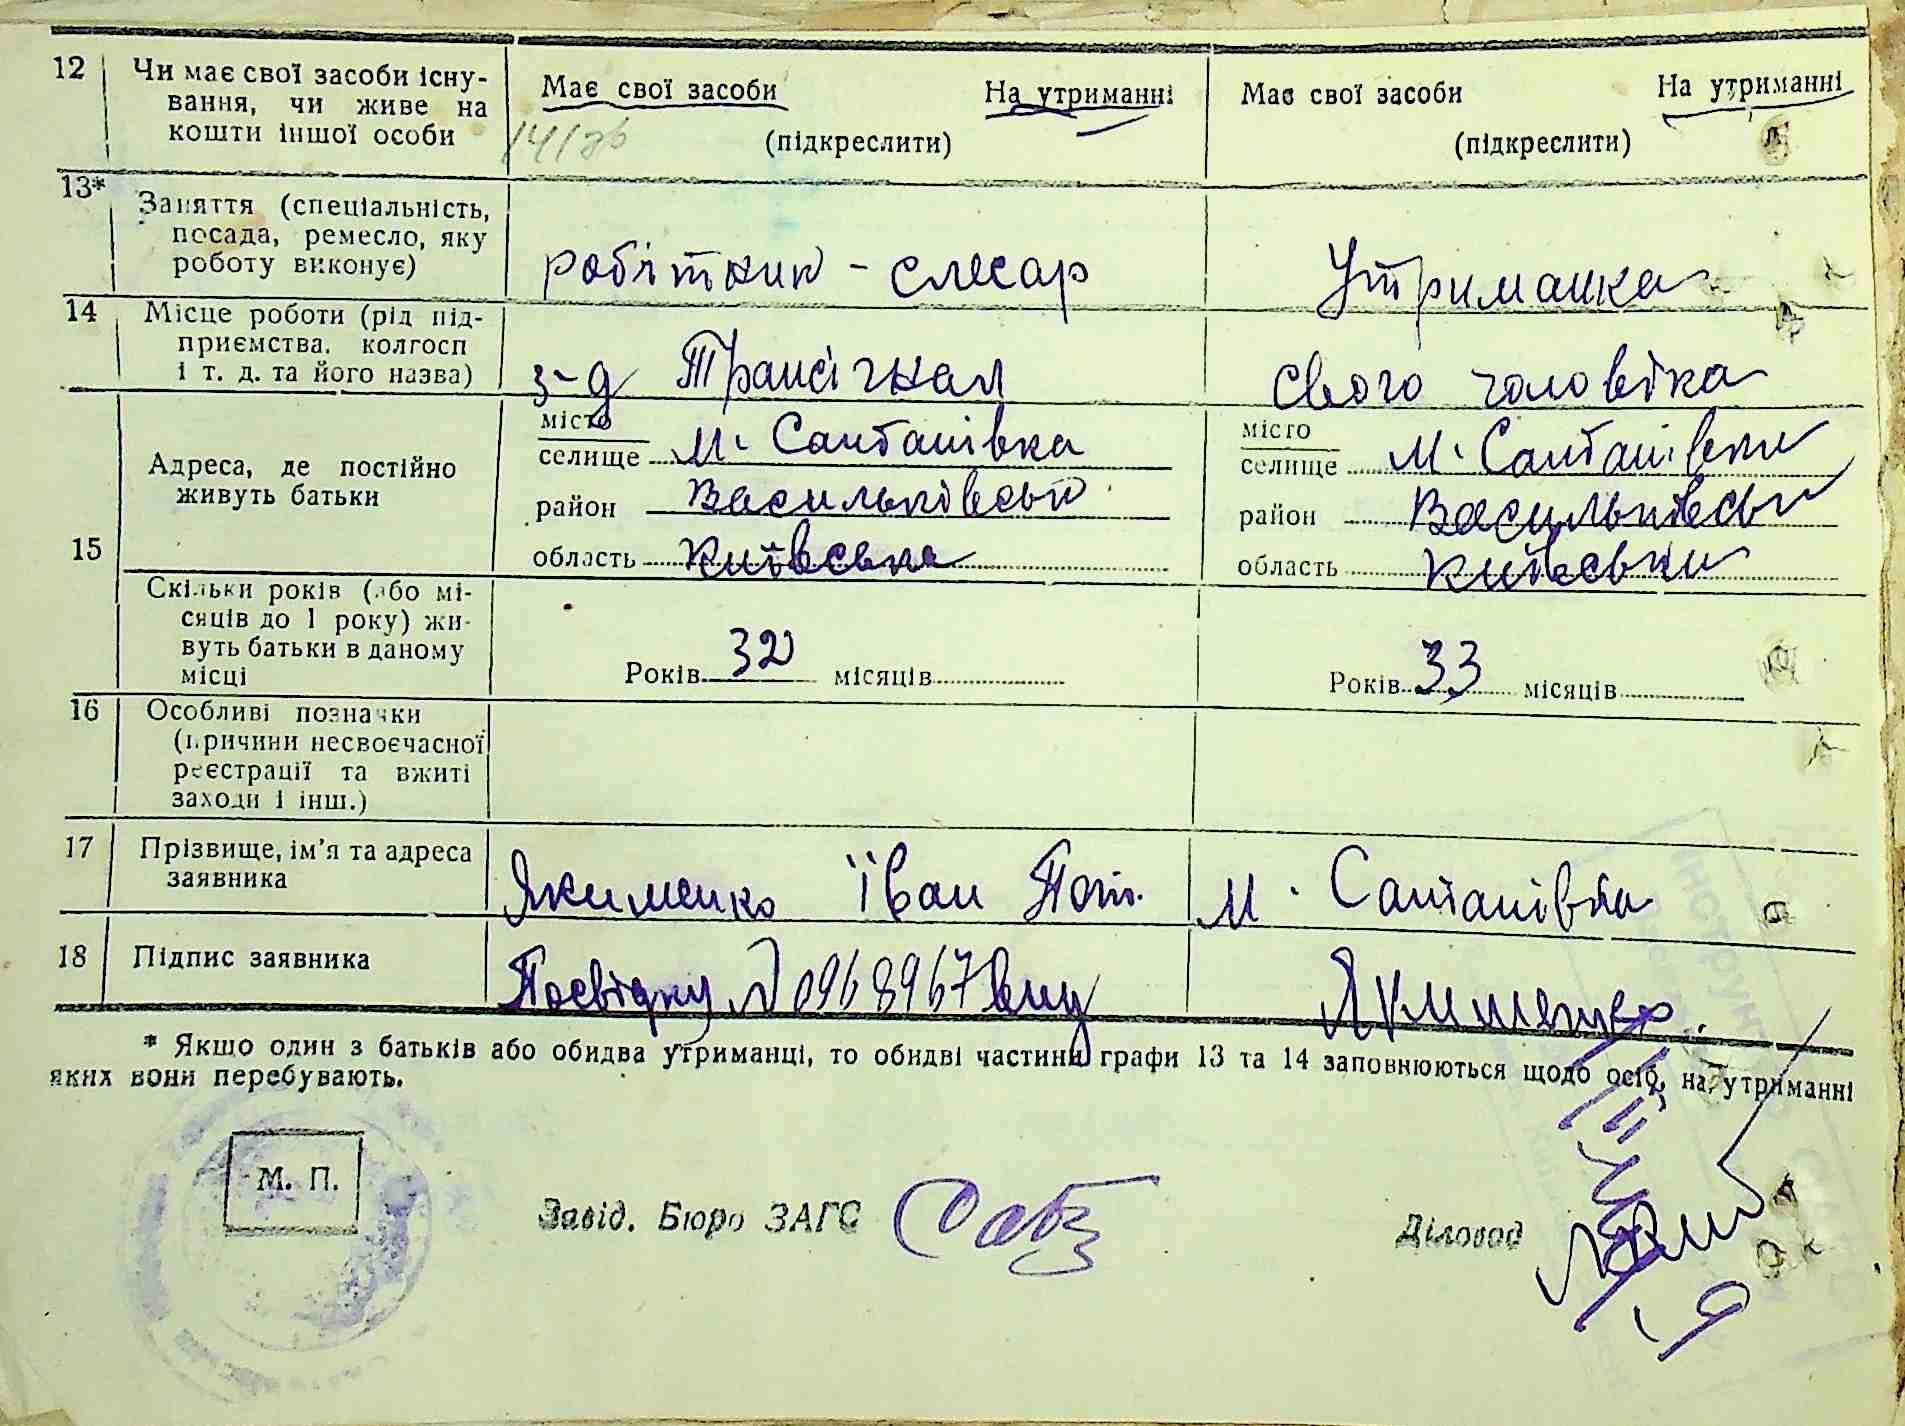 12 Чи має свої засоби існу-
вання, чи живе на
кошти іншої особи
Має свої засоби На утриманні
(підкреслити)
Має свої засоби На утриманні
(підкреслити)
13* Заняття (спеціальність,
посада, ремесло, яку
роботу виконує)
робітник - слесар
Утриманка
14 Місце роботи (рід під-
приємства, колгосп
і т. д. та його назва)
з-д Трансігнал
свого чоловіка
15 Адреса, де постійно
живуть батьки
місто
селище м. Салтанівка
район Васильківськ
область Київська
місто
селище м. Салтанівки
район Васильківськ
область Київськи
Скільки років (або мі-
сяців до 1 року) жи-
вуть батьки в даному
місці
Років 32 місяців
Років 33 місяців
16 Особливі позначки
(причини несвоєчасної
реєстрації та вжиті
заходи і інш.)
17 Прізвище, ім'я та адреса
заявника
Якименко Іван Пот.
м. Салтанівка
18 Підпис заявника
Посвідку № 0968967
* Якщо один з батьків або обидва утриманці, то обидві частини графи 13 та 14 заповнюються щодо осіб, на утриманні
яких вони перебувають.
М. П.
Завід. Бюро ЗАГС
Діловод